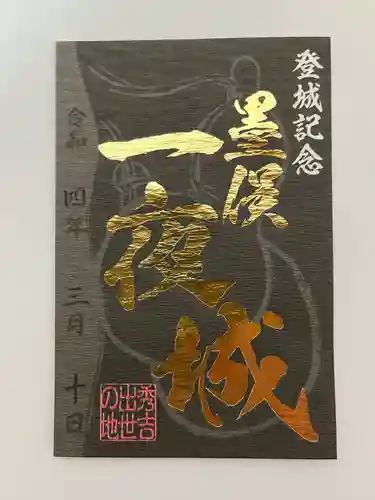 登城記念
墨俣
一夜城
令和 四年 三月 十日
秀吉
出世
の地